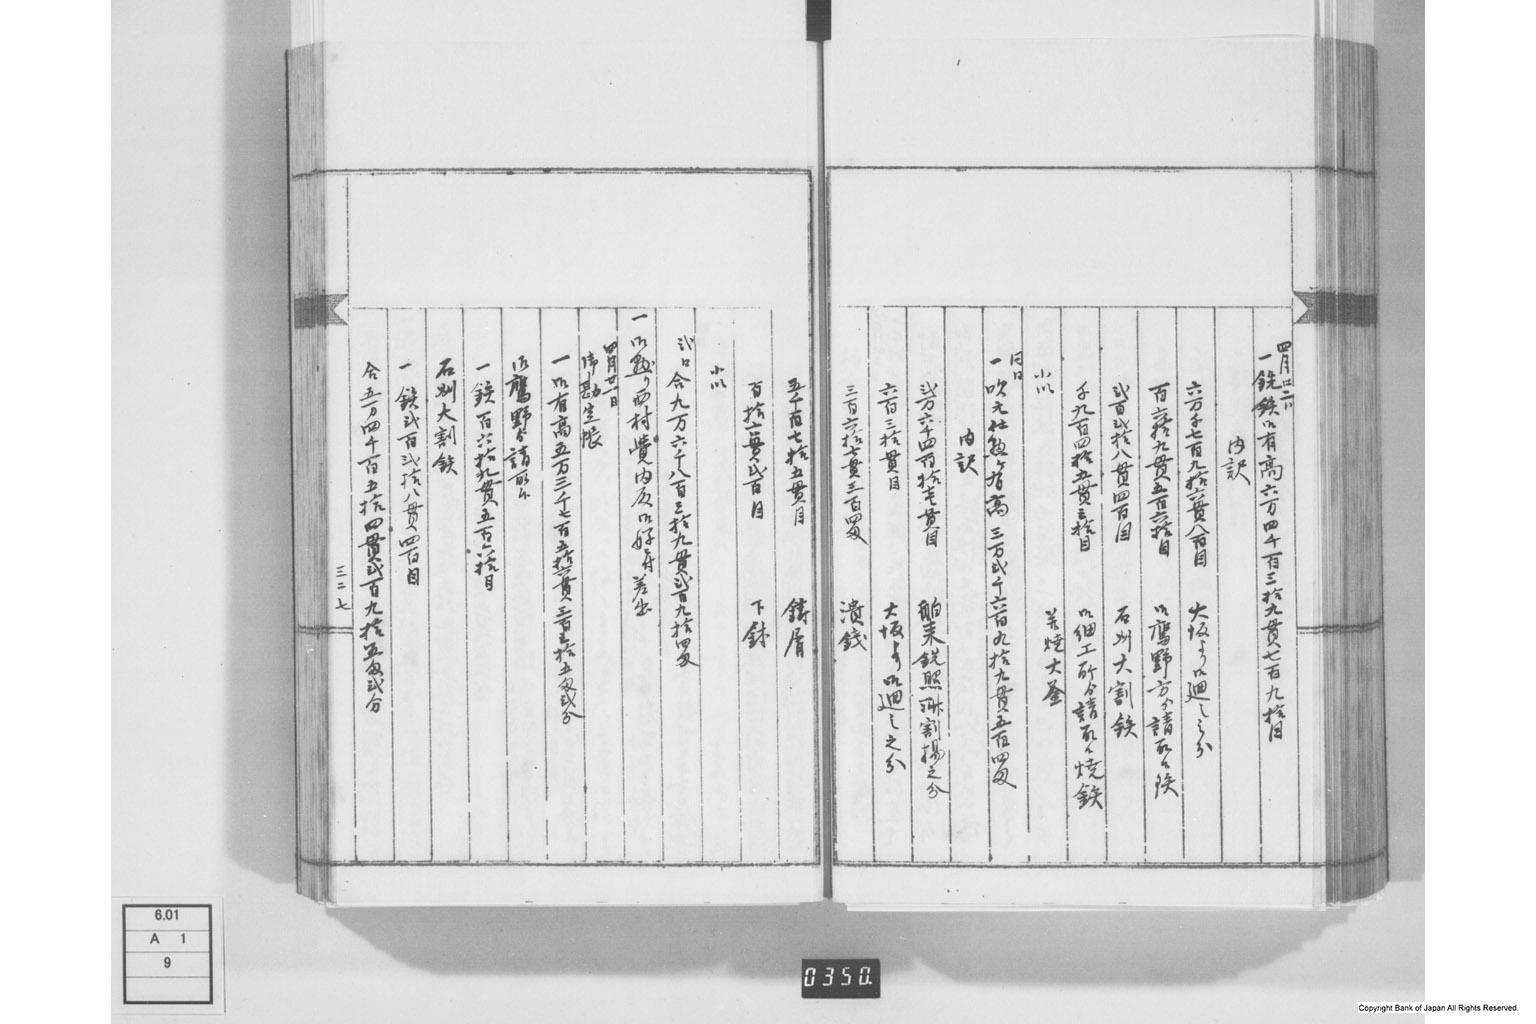 四月
一 銑鉄御有高六万四千百三拾九貫七百九拾目
内訳
六万千七百九拾六貫八百目 大坂より御廻し之分
百六拾九貫五百六拾目 御鷹野方ゟ請取候鉄
弐百弐拾八貫四百目 石州大割鉄
千九百四拾五貫三拾目 御細工所ゟ請取候焼鉄
小以 焼大釜
同日
一 吹元仕数有高 三万弐千六百九拾九貫五百四匁
内訳
弐万六千四百拾七貫目 舶来銑 割揚之分
六百三拾貫目 大坂より御廻し之分
三百六拾七貫三百四匁 潰銭
五千百七拾五貫目 鋳屑
百拾六貫弐百目 下鉢
小以
弐口合九万六千八百三拾九貫弐百九拾四匁
一 御 西村 内 差出
四月廿一日
御勘定帳
一 御有高五万三千七百五拾六貫三百三拾五匁弐分
御鷹野ゟ請取候
一 鉄百六拾九貫五百六拾目
石州大割鉄
一 鉄弐百弐拾八貫四百目
合五万四千百五拾四貫弐百九拾五匁弐分
三二七
6.01
A 1
9
0350.
Copyright Bank of Japan All Rights Reserved.